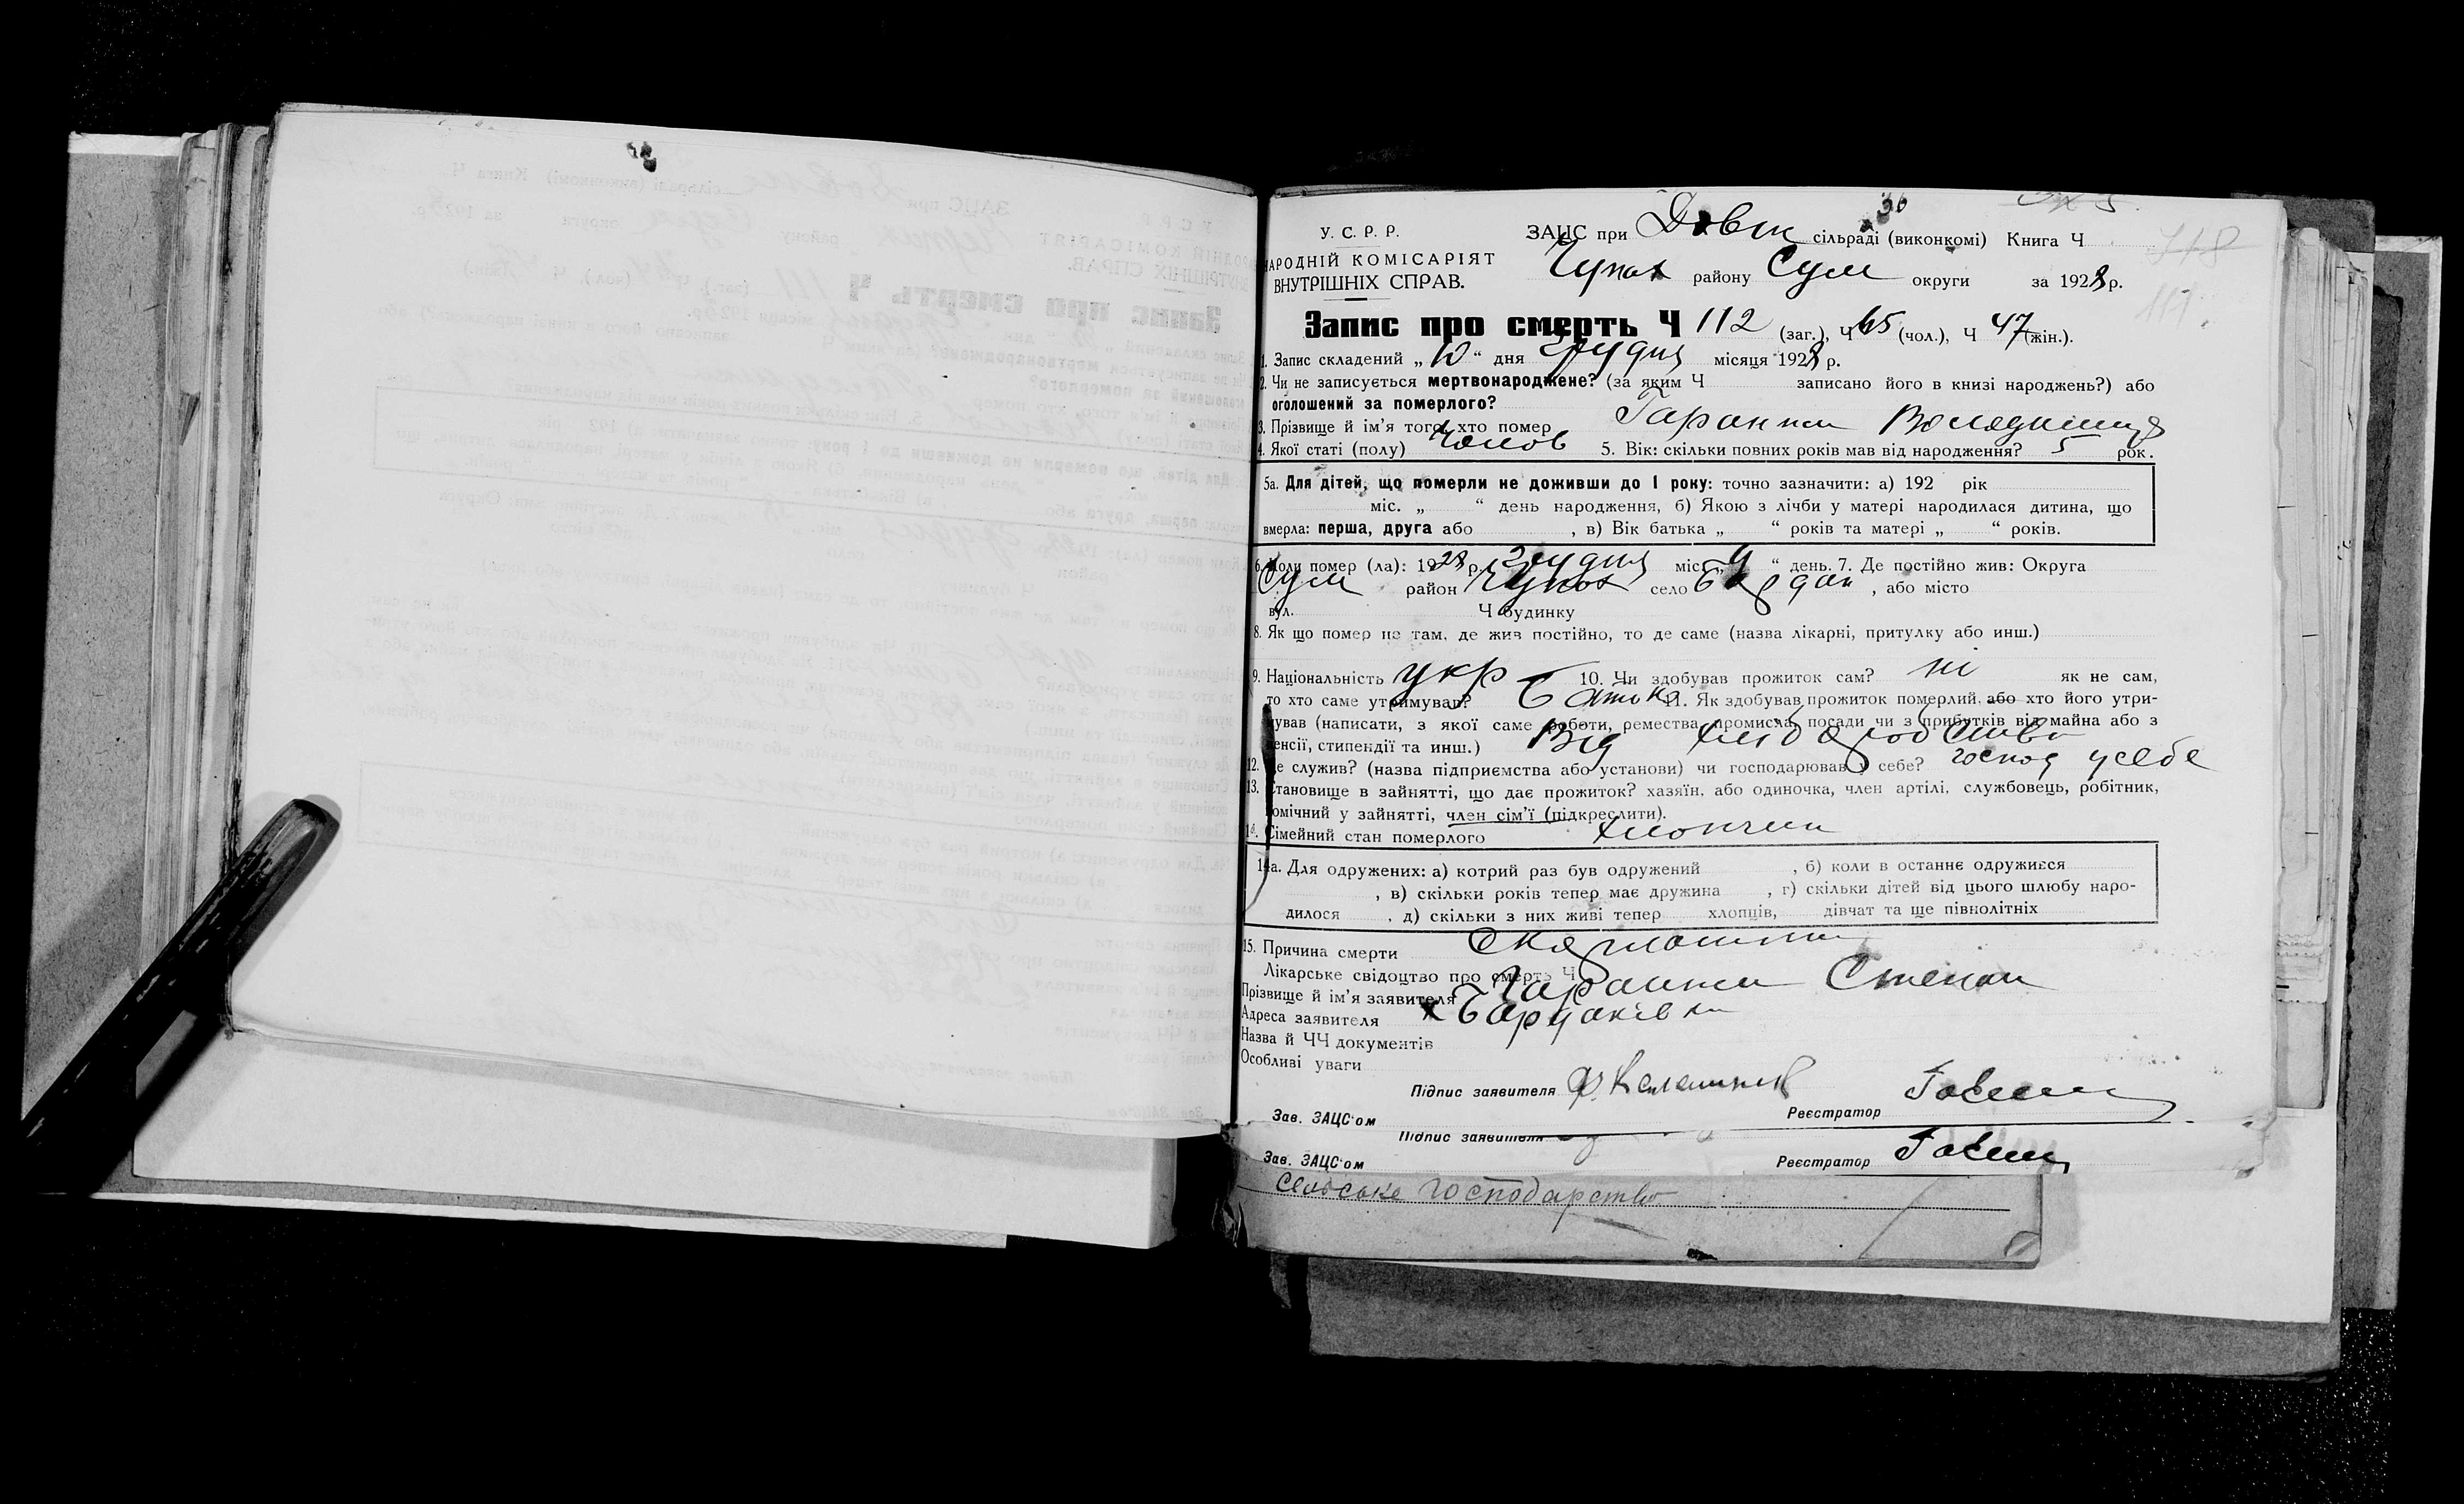 36
У. С. Р. Р.
ЗАЦС при Довж сільраді (виконкомі) Книга Ч
118
НАРОДНІЙ КОМІСАРІЯТ
ВНУТРІШНІХ СПРАВ.
Чупах району Сум округи за 1928 р.
111
Запис про смерть Ч 112 (заг.), Ч 65 (чол.), Ч 47 (жін.).
1. Запис складений „ 10 “ дня Грудня місяця 1928 р.
2. Чи не записується мертвонароджене? (за яким Ч записано його в книзі народжень?) або
оголошений за померлого?
3. Прізвище й ім’я того, хто помер Гаранжа Володимир
4. Якої статі (полу) Чолов 5. Вік: скільки повних років мав від народження? 5 рок.
5а. Для дітей, що померли не доживши до 1 року: точно зазначити: а) 192 рік
міс. „ “ день народження, б) Якою з лічби у матері народилася дитина, що
вмерла: перша, друга або , в) Вік батька „ “ років та матері „ “ років.
6. Коли помер (ла): 1928 р. Грудня міс. „ 9 “ день. 7. Де постійно жив: Округа
Сум район Чупах село Бардак , або місто
вул. Ч будинку
8. Як що помер не там, де жив постійно, то де саме (назва лікарні, притулку або инш.)
9. Національність укр 10. Чи здобував прожиток сам? ні як не сам,
то хто саме утримував? Батько 11. Як здобував прожиток померлий, або хто його утри-
мував (написати, з якої саме роботи, ремества, промисла, посади чи з прибутків від майна або з
пенсії, стипендії та инш.) Від хліборобства
12. Де служив? (назва підприємства або установи) чи господарював у себе? господ у себе
13. Становище в зайнятті, що дає прожиток? хазяїн, або одиночка, член артілі, службовець, робітник,
помічний у зайнятті, член сім’ї (підкреслити).
14. Сімейний стан померлого хлопчик
14а. Для одружених: а) котрий раз був одружений , б) коли в останнє одружився
, в) скільки років тепер має дружина , г) скільки дітей від цього шлюбу наро-
дилося , д) скільки з них живі тепер хлопців, дівчат та ще півнолітніх
15. Причина смерти Скарлатина
Лікарське свідоцтво про смерть Ч
Прізвище й ім’я заявителя Гаранжа Степан
Адреса заявителя х Бардаківка
Назва й ЧЧ документів
Особливі уваги
Підпис заявителя
Зав. ЗАЦС’ом Реєстратор
Підпис заявителя
Зав. ЗАЦС’ом Реєстратор
сельське господарство